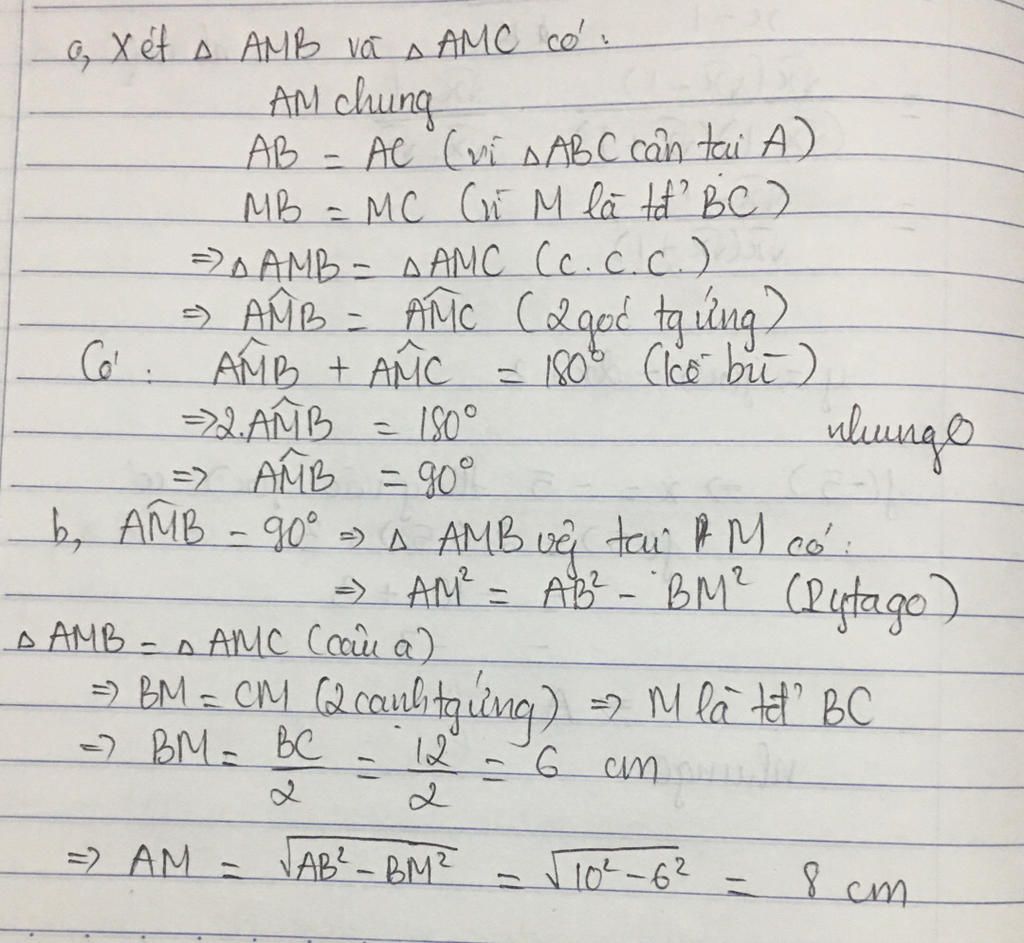 a, Xét Δ AMB và Δ AMC có:
AM chung
AB = AC (vì ΔABC cân tại A)
MB = MC (vì M là tđ' BC)
=> Δ AMB = Δ AMC (c.c.c.)
=> AM̂B = AM̂C (2 góc tg ứng)
Có: AM̂B + AM̂C = 180° (kề bù)
=> 2.AM̂B = 180°
nhungo
=> AM̂B = 90°
b, AM̂B = 90° => Δ AMB vg tại M có:
=> AM² = AB² - BM² (Pytago)
Δ AMB = Δ AMC (câu a)
=> BM = CM (2 cạnh tg ứng) => M là tđ' BC
=> BM = BC/2 = 12/2 = 6 cm
=> AM = √(AB² - BM²) = √(10² - 6²) = 8 cm